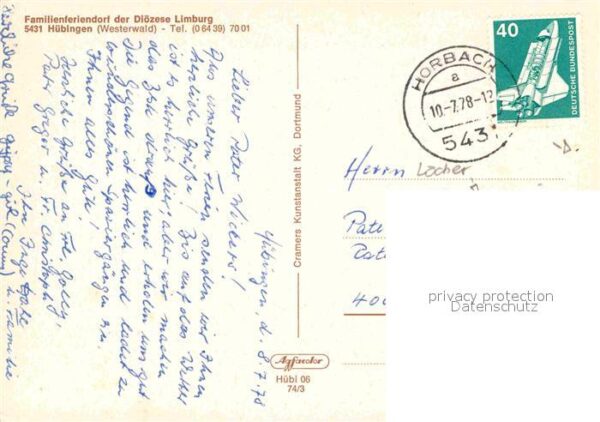 Familienferiendorf der Diözese Limburg
5431 Hübingen (Westerwald) - Tel. (0 64 39) 70 01
Hübingen, d. 8.7.78
Lieber Pater
Aus unseren Ferien senden wir Ihnen
herzliche Grüße! Bis auf das Wetter
ist es herrlich hier, aber wir machen
das Beste draus und erholen uns gut
die Gegend ist herrlich und ladet zu
wunderschönen Spaziergängen ein.
Ihnen alles Gute!
Herzliche Grüße an Frl. Golly,
Pater Gregor u. Fr. Christoph
Ihre Inge
u. Familie
Cramers Kunstanstalt KG, Dortmund
Agfacolor
Hübi 06
74/3
HORBACH
a
10.-7.78-12
543
40
DEUTSCHE BUNDESPOST
Herrn Locher
Pate
400
privacy protection
Datenschutz